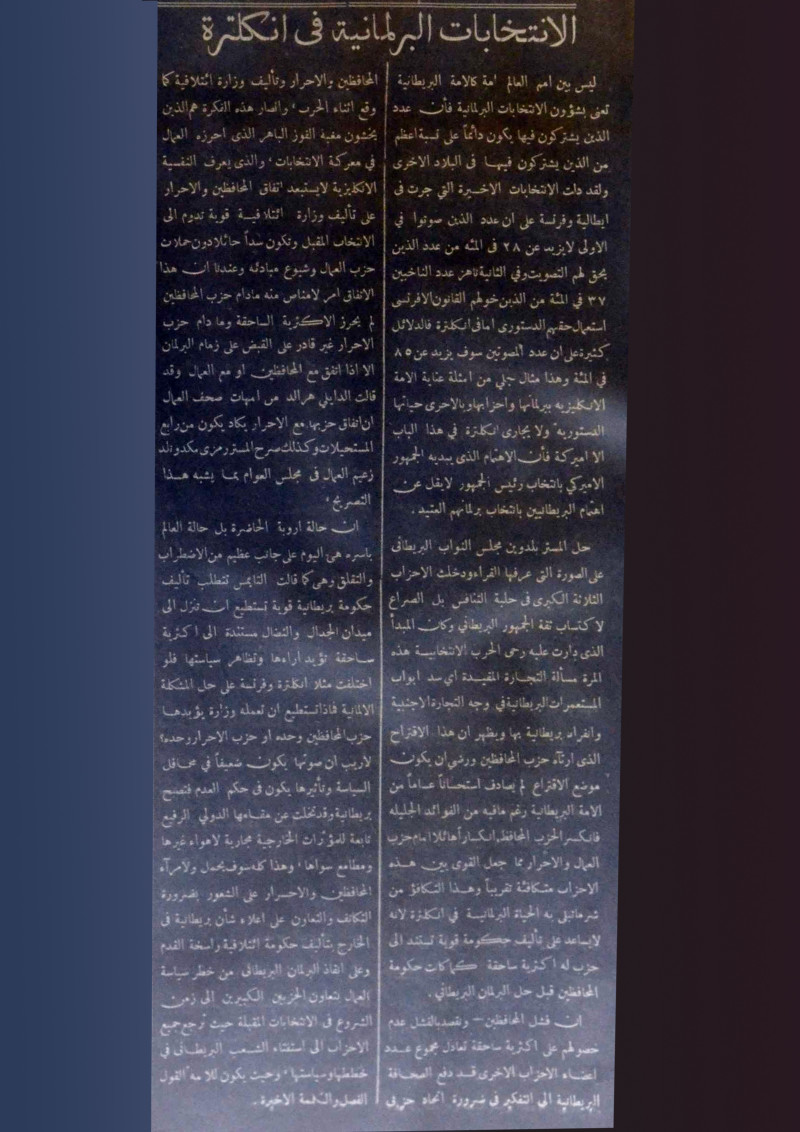 الانتخابات البرلمانية فى انكلترة
ليس بين امم العالم امة كالامة البريطانية
تعنى بشؤون الانتخابات البرلمانية فأن عدد
الذين يشتركون فيها يكون دائماً على نسبة اعظم
من الذين يشتركون فيهـا فى البلاد الاخرى
ولقد دلت الانتخابات الاخيرة التي جرت فى
ايطالية وفرنسة على ان عدد الذين صوتوا في
الاولى لايزيد عن ٢٨ فى المئه من عدد الذين
يحق لهم التصويت وفي الثانية ناهز عدد الناخبين
٣٧ في المئة من الذين خولهم القانون الافرنسى
استعمال حقهم الدستورى اما فى انكلترة فالدلائل
كثيرة على ان عدد المصوتين سوف يزيد عن ٨٥
في المئة وهذا مثال جلي من امثلة عناية الامة
الانكليزيه ببرلمانها واحزابها وبالاحرى حياتها
الدستوريه ولا يجارى انكلترة في هذا الباب
الا اميركة فأن الاهتمام الذى يبديه الجمهور
الاميركي بانتخاب رئيس الجمهور لايقل عن
اهتمام البريطانيين بانتخاب برلمانهم العتيد .
حل المستر بلدوين مجلس النواب البريطانى
على الصورة التى عرفها القراء ودخلت الاحزاب
الثلاثة الكبرى فى حلبة التنافس بل الصراع
لاكتساب ثقة الجمهور البريطاني وكان المبدأ
الذى دارت عليه رحى الحرب الانتخابيـة هذه
المرة مسألة التجـارة المقيدة اى سد ابواب
المستعمرات البريطانية في وجه التجارة الاجنبية
وانفراد بريطانية بها ويظهر ان هذا الاقتراح
الذى ارتآه حزب المحافظين ورضى ان يكون
موضع الاقتراع لم يصادف استحساناً عـاماً من
الامة البريطانية رغم مافيه من الفوائد الجليله
فانكسر الحزب المحافظ انكساراً هائلا امام حزب
العمال والاحرار مما جعل القوى بين هـذه
الاحزاب متكافئة تقريباً وهـذا التكافؤ من
شر ماتبلى به الحياة البرلمانيـة في انكلترة لانه
لايساعد على تأليف حكومة قوية تستند الى
حزب له اكثرية ساحقة كما كانت حكومة
المحافظين قبل حل البرلمان البريطاني .
ان فشل المحافظين — ونقصد بالفشل عدم
حصولهم على اكثرية ساحقة تعادل مجموع عـدد
اعضاء الاحزاب الاخرى قـد دفع الصحـافة
البريطانية الى التفكير فى ضرورة اتحاد حزبى
المحافظين والاحرار وتأليف وزارة ائتلافية كما
وقع اثناء الحرب ، وانصار هذه الفكرة هم الذين
يخشون مغبة الفوز الباهر الذى احرزه العمال
في معركة الانتخابات ، والذى يعرف النفسية
الانكليزية لايستبعد اتفاق المحافظين والاحرار
على تأليف وزارة ائتلافيـة قوية تدوم الى
الانتخاب المقبل وتكون سداً حائلا دون حملات
حزب العمال وشيوع مبادئه وعندنا ان هذا
الاتفاق امر لامناص منه مادام حزب المحافظين
لم يحرز الاكثرية الساحقة وما دام حزب
الاحرار غير قادر على القبض على زمام البرلمان
الا اذا اتفق مع المحافظين او مع العمال وقد
قالت الدايلي هرالد من امهات صحف العمال
ان اتفاق حزبها مع الاحرار يكاد يكون من رابع
المستحيلات وكذلك صرح المستر رمزى مكدونالد
زعيم العمال فى مجلس العوام بما يشبه هـذا
التصريح ،
ان حالة اروبة الحاضرة بل حالة العالم
باسره هى اليوم على جانب عظيم من الاضطراب
والتقلق وهى كما قالت التايمس تتطلب تأليف
حكومة بريطانية قوية تستطيع ان تنزل الى
ميدان الجدال والنضال مستندة الى اكثرية
ساحقة تؤيد آراءها وتظاهر سياستها فلو
اختلفت مثلا انكلترة وفرنسة على حل المشكلة
الالمانية فماذا تستطيع ان تعمله وزارة يؤيدهـا
حزب المحافظين وحده او حزب الاحرار وحده ؟
لاريب ان صوتها يكون ضعيفاً في محـافل
السياسة وتأثيرها يكون فى حكم العدم فتصبح
بريطانية وقد تخلت عن مقـامها الدولي الرفيع
تابعة للمؤثرات الخارجية مجارية لاهواء غيرها
ومطامع سواها ، وهذا كله سوف يحمل ولامرآء
المحافظين والاحـرار على الشعور بضرورة
التكاتف والتعاون على اعلاء شأن بريطانية فى
الخارج بتأليف حكومة ائتلافية راسخة القدم
وعلى انقاذ البرلمان البريطانى من خطر سياسة
العمال بتعاون الحزبين الكبيرين الى زمن
الشروع فى الانتخابات المقبلة حيث ترجع جميع
الاحزاب الى استفتاء الشعب البريطـانى في
خططها وسياستها ، وحيث يكون للامة القول
الفصل والكلمة الاخيرة .